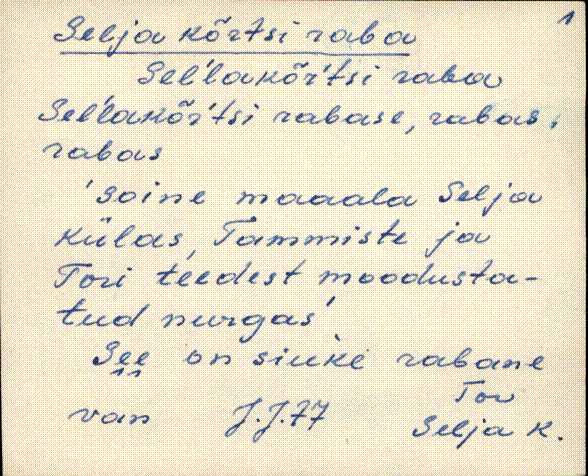 1
Selja kõrtsi raba
Sel'lakõr'tsi raba
Sel'lakõr'tsi rabase, rabas,
rabas
'soine maaala Selja
külas, Tammiste ja
Tori teedest moodusta-
tud nurgas'
See on siuke rabane
Tor
van J.J.77 Selja k.